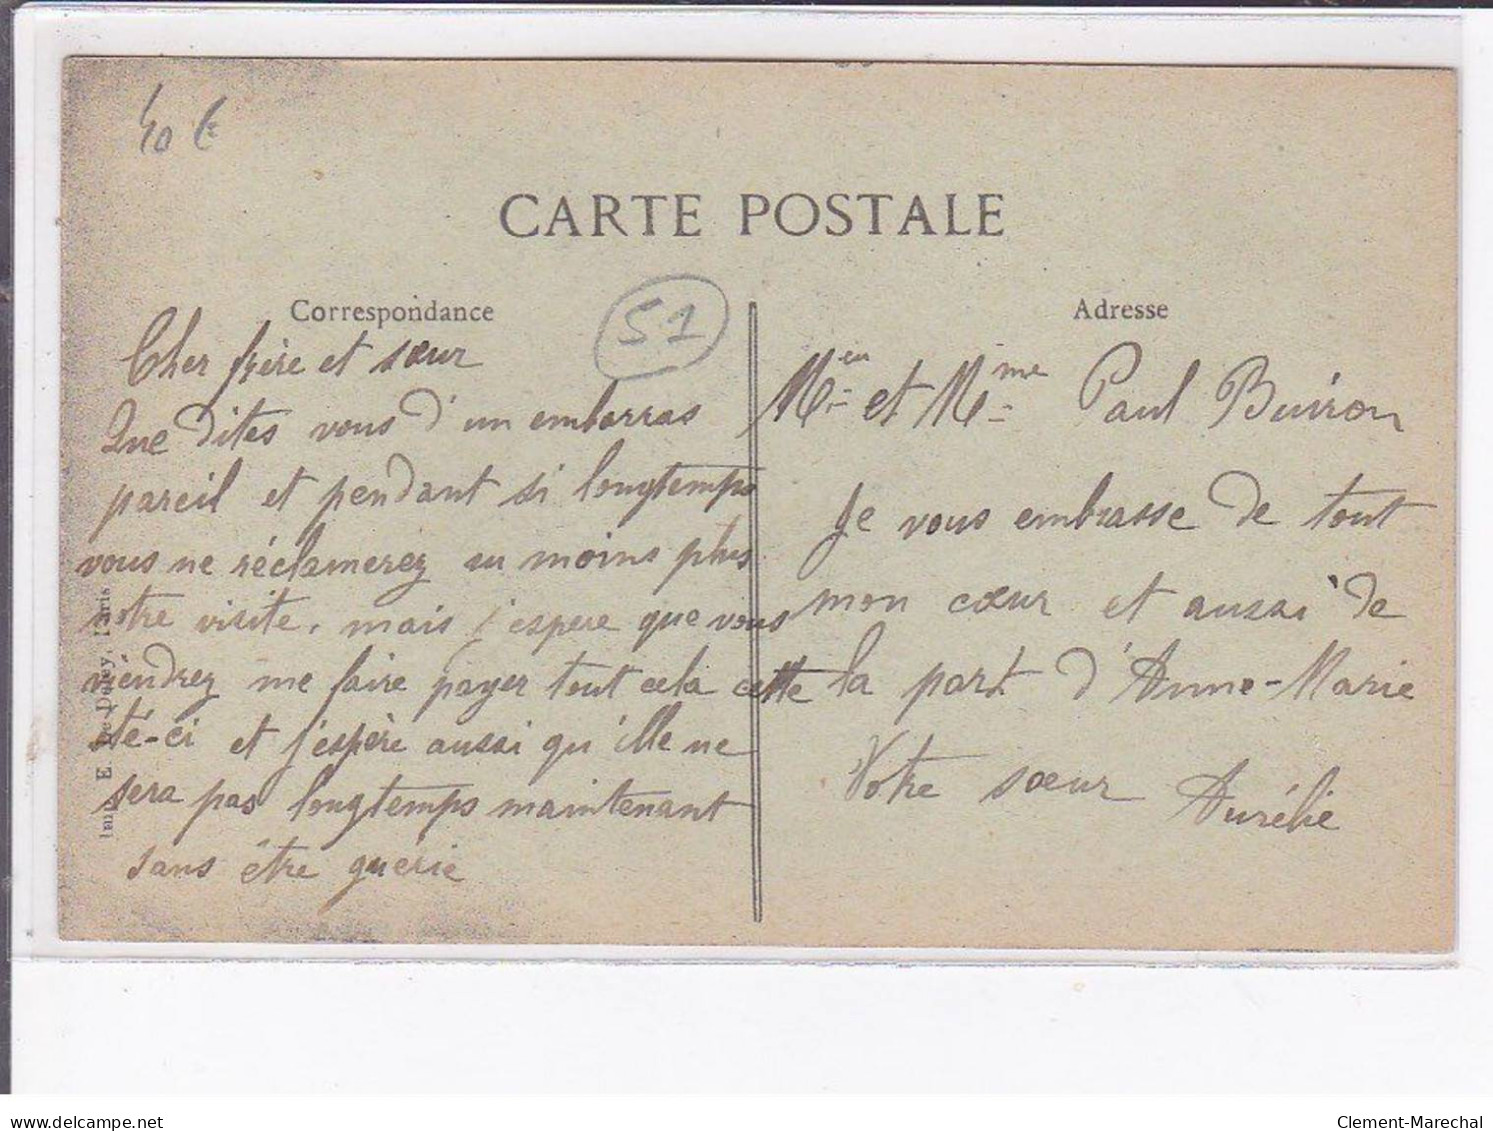 40 €
CARTE POSTALE
Correspondance
51
Cher frère et sœur
Que dites vous d'un embarras
pareil et pendant si longtemps
vous ne réclamerez au moins plus
votre visite, mais j'espere que vous
viendrez me faire payer tout cela cette
té-ci et j'espère aussi qu'ille ne
sera pas longtemps maintenant
sans être guérie
Imp. E. Le Deley, Paris
Adresse
Mr et Mme Paul Buiron
Je vous embrasse de tout
mon cœur et aussi de
la part d'Anne-Marie
Votre sœur Aurélie
delcampe.net
Clement-Marechal